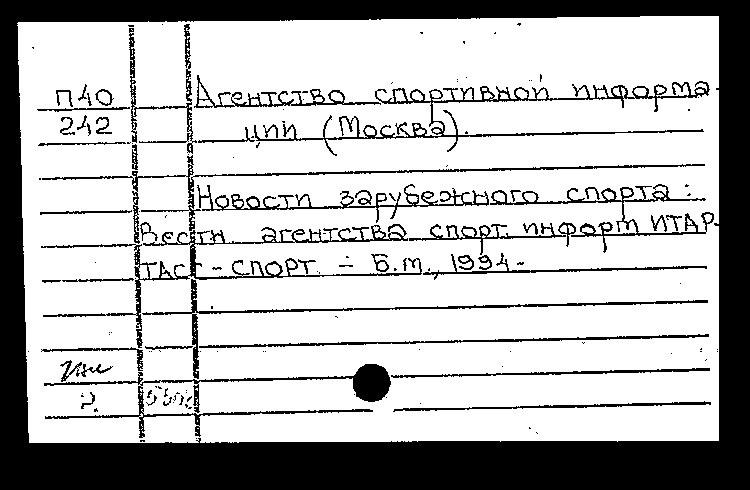 П40 Агентство спортивной информа-
242 ции (Москва).
Новости зарубежного спорта:
Вести агентства спорт. информ ИТАР-
ТАСС-СПОРТ. - Б.м., 1994.-